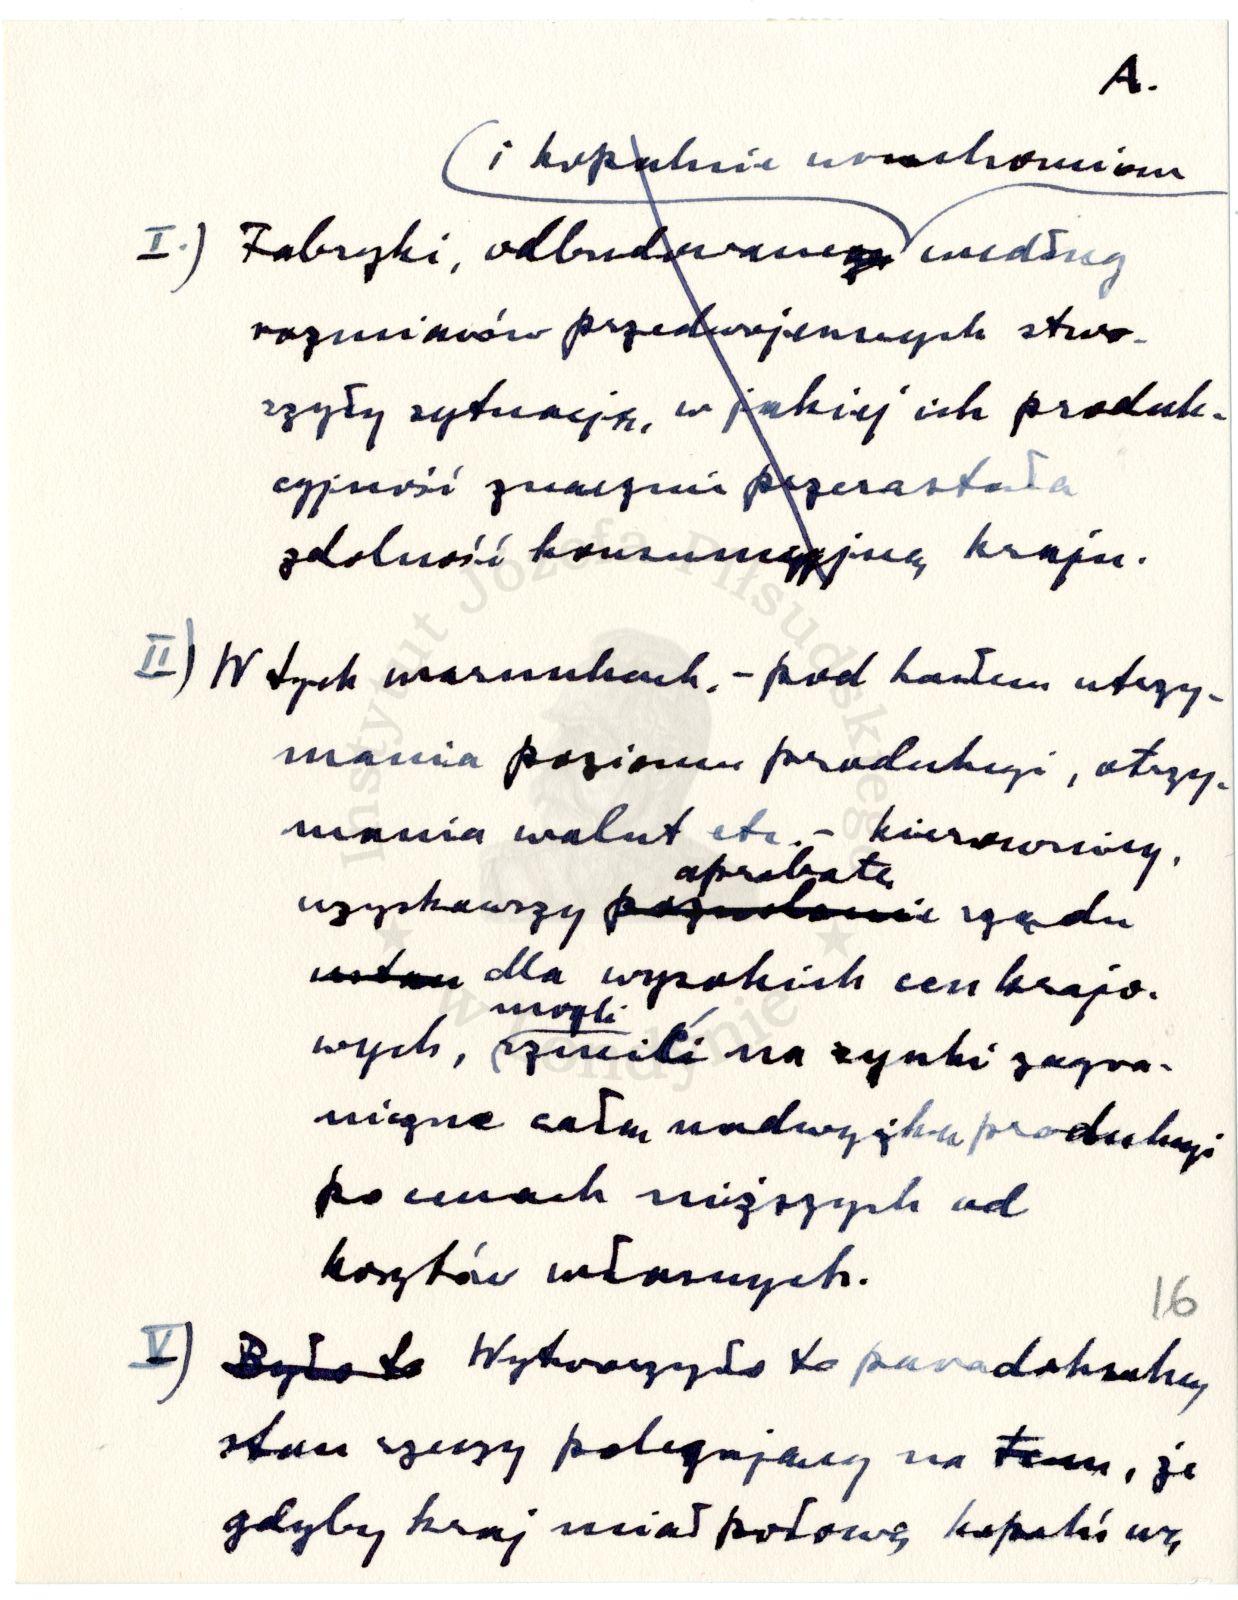 A.
i kopalnie uruchomione
I.) Fabryki, odbudowane według
rozmiarów przedwojennych stwo-
rzyły sytuację, w jakiej ich produk-
cyjność znacznie przerastała
zdolność konsumcyjną kraju.
II) W tych warunkach, - pod hasłem utrzy-
mania poziomu produkcji, otrzy-
mania walut etc. - kierownicy,
aprobatę
uzyskawszy pozwolenie rządu
dla wysokich cen krajo-
mogli
wych, rzucić na rynki zagra-
niczne całą nadwyżkę produkcji
po cenach niższych od
kosztów własnych.
16
V) Było to Wytworzyło to paradoksalny
stan rzeczy polegający na tem, że
gdyby kraj miał połowę kopalń wę
Instytut Józefa Piłsudskiego
w Londynie